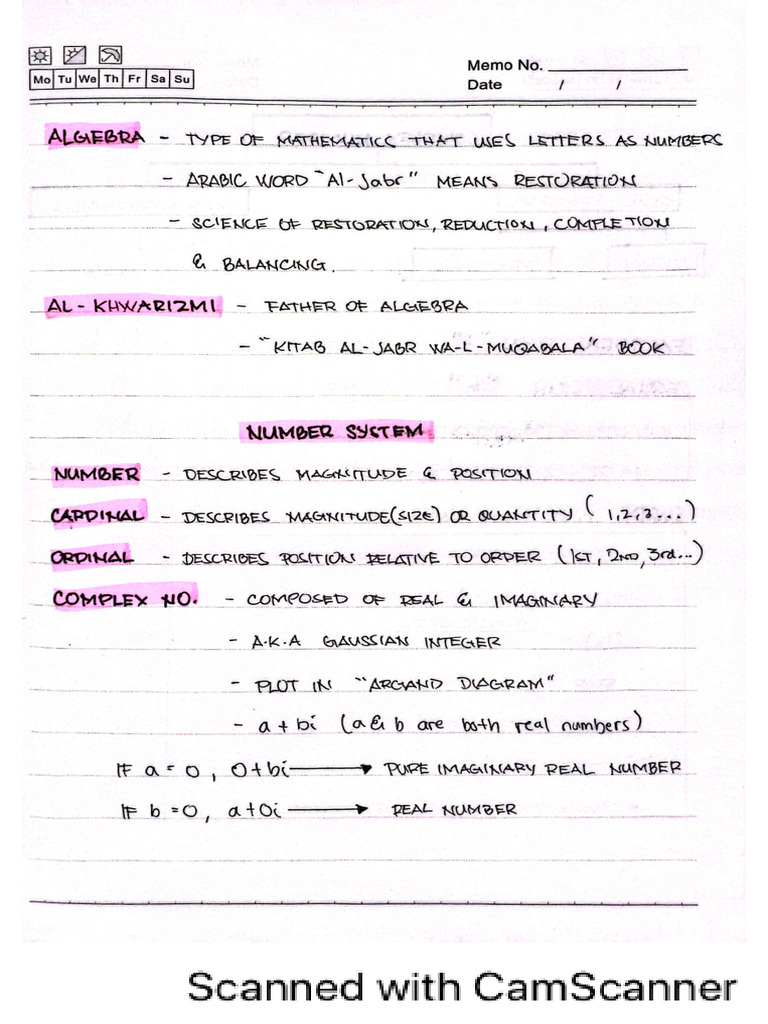 Mo Tu We Th Fr Sa Su
Memo No.
Date / /
ALGEBRA - TYPE OF MATHEMATICS THAT USES LETTERS AS NUMBERS
- ARABIC WORD "Al-Jabr" MEANS RESTORATION
- SCIENCE OF RESTORATION, REDUCTION, COMPLETION
& BALANCING.
AL-KHWARIZMI - FATHER OF ALGEBRA
- "KITAB AL-JABR WA-L-MUQABALA" BOOK
NUMBER SYSTEM
NUMBER - DESCRIBES MAGNITUDE & POSITION
CARDINAL - DESCRIBES MAGNITUDE(SIZE) OR QUANTITY (1,2,3...)
ORDINAL - DESCRIBES POSITION RELATIVE TO ORDER (1ST, 2ND, 3rd...)
COMPLEX NO. - COMPOSED OF REAL & IMAGINARY
- A.K.A GAUSSIAN INTEGER
- PLOT IN "ARGAND DIAGRAM"
- a + bi (a & b are both real numbers)
IF a = 0, 0+bi → PURE IMAGINARY REAL NUMBER
IF b = 0, a+0i → REAL NUMBER
Scanned with CamScanner